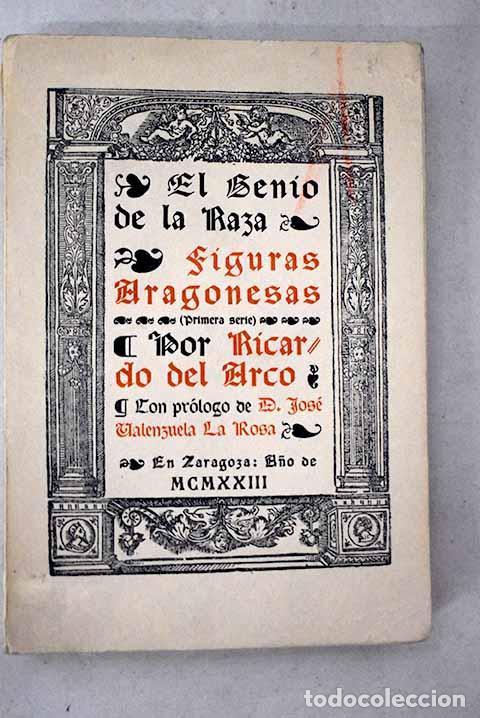 El Genio
de la Raza
Figuras
Aragonesas
(Primera serie)
¶ Por Ricar-
do del Arco
¶ Con prólogo de D. José
Valenzuela La Rosa
En Zaragoza: Año de
MCMXXIII
todocoleccion